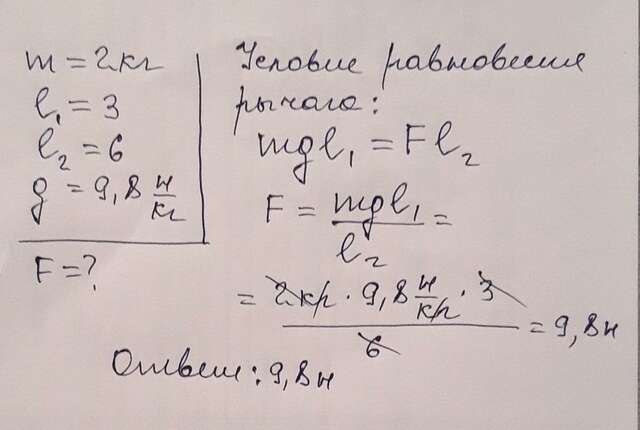 m = 2кг
l₁ = 3
l₂ = 6
g = 9,8 н/кг
F = ?
Условие равновесия
рычага:
mgl₁ = Fl₂
F = mgl₁/l₂ =
= 2кг · 9,8 н/кг · 3 / 6 = 9,8н
Ответ: 9,8н